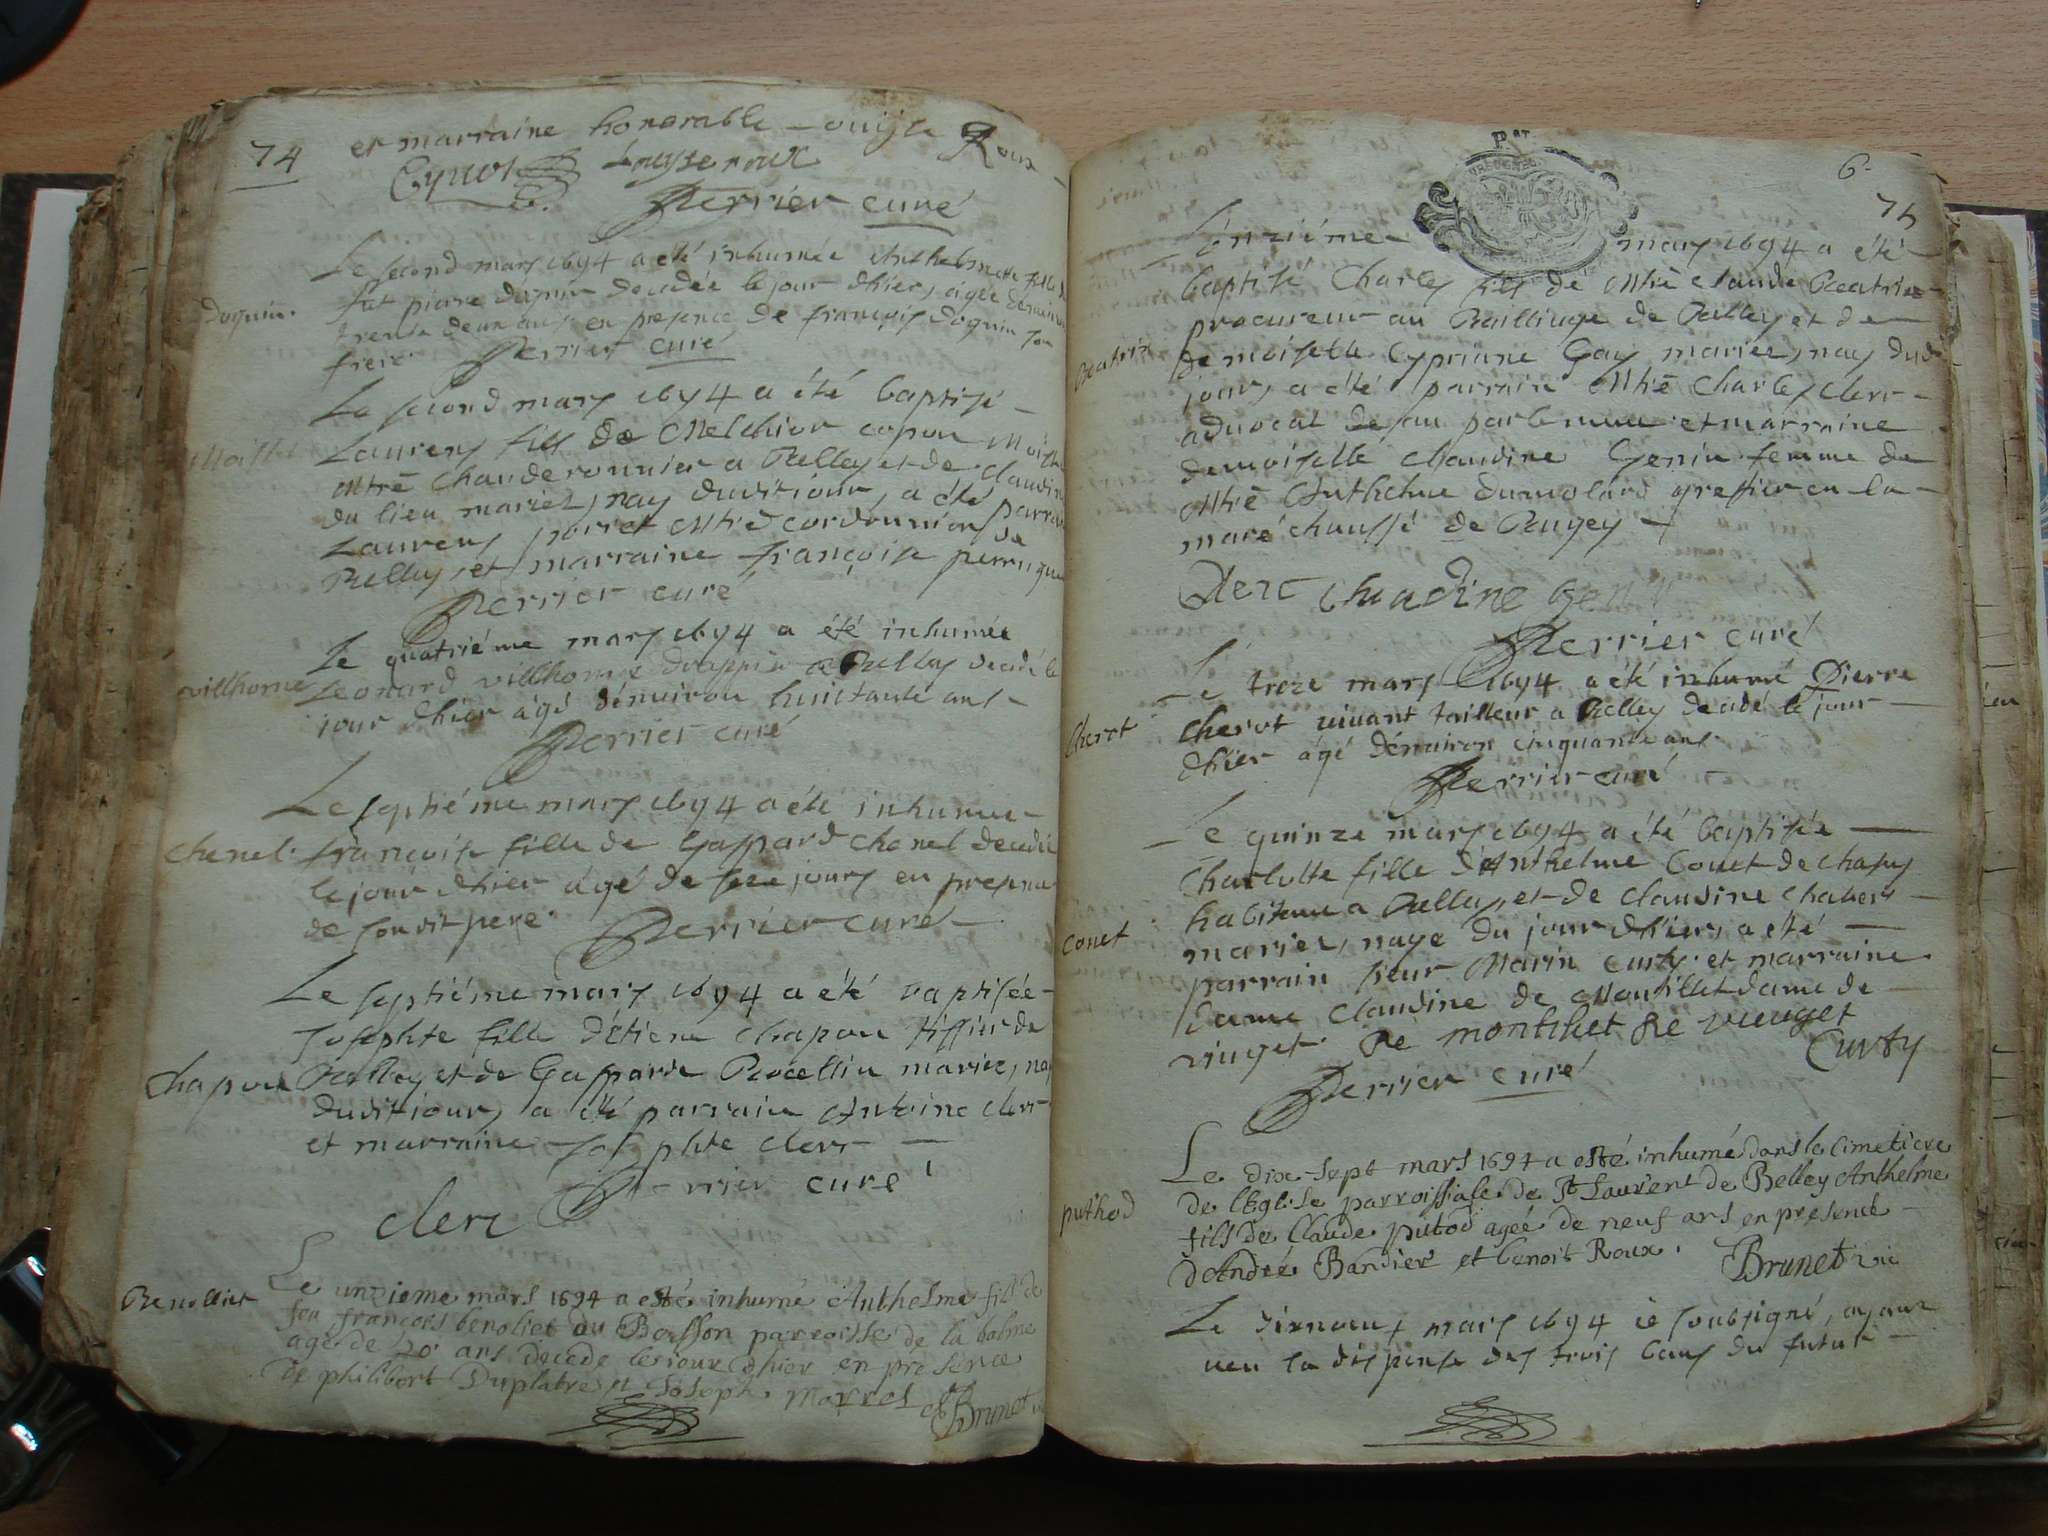 74
et marraine honorable Roux
Louyse roux
Perrier curé
doquin.
Le second mars 1694 a été inhumée Anthelmette fille de
fut pierre doquin decedée le jour d'hier, agée denviron
trente deux ans en presence de françois doquin son
frere. Perrier curé
Le second mars 1694 a été baptisé
Laurens fils de Melchior
Mtre Chauderonnier a Belley et de claudine
du lieu mariez, nay duditjour, a été parrain
Laurens Mtre cordonnier de
Belley, et marraine françoise
Perrier curé
villhome
Le quatriéme mars 1694 a été inhumée
Leonard villhome a Belley decedé le
jour dhier agé dénviron huictante ans
Perrier curé
chenel.
Le septiéme mars 1694 a été inhumée
françoise fille de Gaspard chenel decedée
le jour dhier agé de jours en presence
de sondit pere. Perrier curé
chapon
Le septiéme mars 1694 a été baptisée
Josephte fille détiene chapon tissier de
Belley et de Gasparde mariez, nay
duditjour, a été parrain Antoine clerc
et marraine Josephte clerc
Perrier curé
clerc
Benolliet
Le unzieme mars 1694 a esté inhumé Anthelme fils de
feu françois benoliet du Boisson parroisse de la balme
agé de 20 ans decede le iour dhier en presence
De philibert Duplatre et Joseph marrel
Brunet
6.
75
L'ónziéme mars 1694 a été
Beatrix
baptisé Charles fils de Mtre claude Beatrix
procureur au Bailliage de Belley et de
demoiselle Cyprianne Gay mariez, nay dud
jour, a été parrain Mtre Charles clerc
advocat de au parlement et marraine
demoiselle claudine Genin femme de
Mtre Anthelme dumolard greffier en la
maréchaussé de Beugey
Clerc Claudine Genin
Perrier curé
Cherot
Le treze mars 1694 a été inhumé Pierre
cherot vivant tailleur a Belley decedé le jour
dhier agé dénviron cinquante ans
Perrier curé
Le quinze mars 1694 a été baptisée
couet
Charlotte fille dAnthelme Couet de
habitant a Belley, et de claudine chabert
mariez, naye du jour dhier, a été
parrain sieur Marin Curty et marraine
Dame claudine de Montillet dame de
viuget. De montilliet De vieuget
Curty
Perrier curé
puthod
Le dix-sept mars 1694 a esté inhumé dans le cimetiere
de lEglise parroissiale de St Laurent de Belley Anthelme
fils de Claude putod ageé de neuf ans en presence
dAndré Bandier et benoit Roux. Brunet vic
Le dixneuf mars 1694 ie soubsigné, ayant
veu la dispense des trois bans du futur